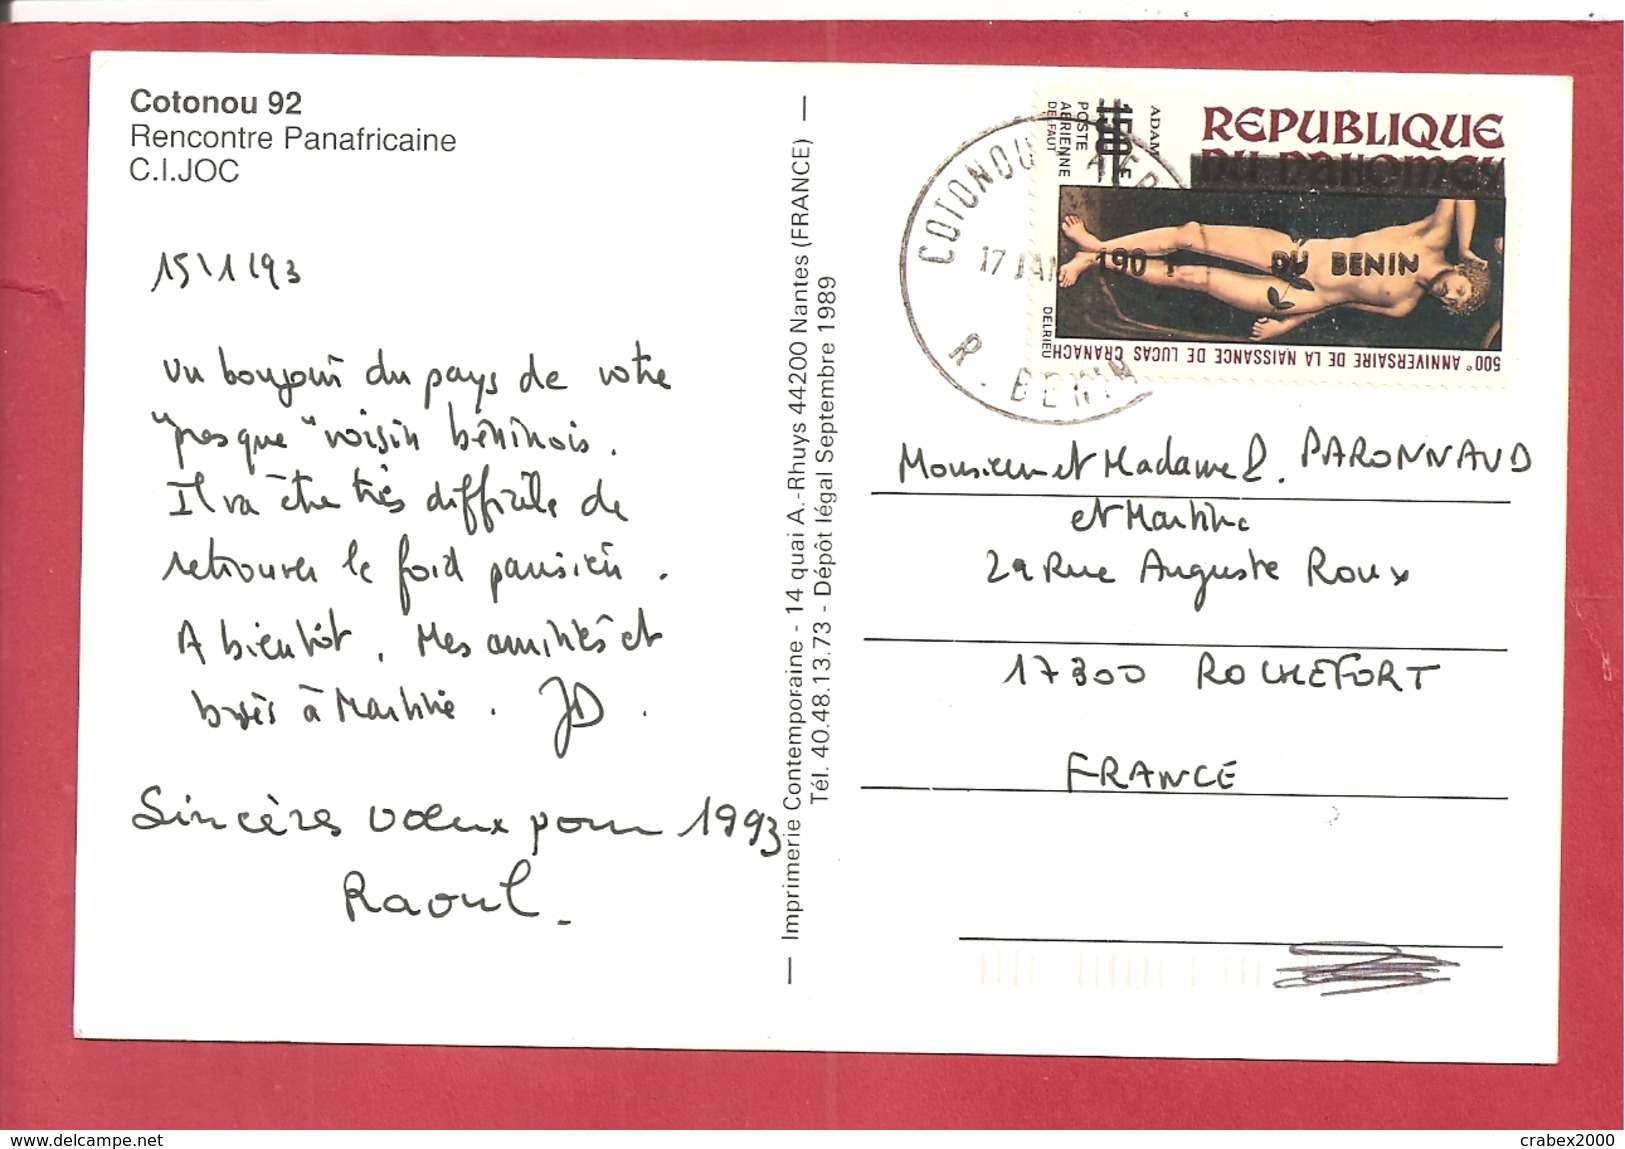 Cotonou 92
Rencontre Panafricaine
C.I.JOC
15\1\93
Un bonjour du pays de votre
"presque" voisin béninois.
Il va être très difficile de
retrouver le froid parisien.
A bientôt. Mes amitiés et
bises à Martine. JD.
Sincères voeux pour 1993
Raoul.
— Imprimerie Contemporaine - 14 quai A.-Rhuys 44200 Nantes (FRANCE) —
Tél. 40.48.13.73 - Dépôt légal Septembre 1989
COTONOU
17 JAN
R. BENIN
REPUBLIQUE
DU DAHOMEY
ADAM
150F
POSTE
AERIENNE
DELFAUT
190 F
DU BENIN
DELRIEU
500e ANNIVERSAIRE DE LA NAISSANCE DE LUCAS CRANACH
Monsieur et Madame PARONNAUD
et Martine
Rue Auguste Roux
17300 ROCHEFORT
FRANCE
www.delcampe.net
crabex2000